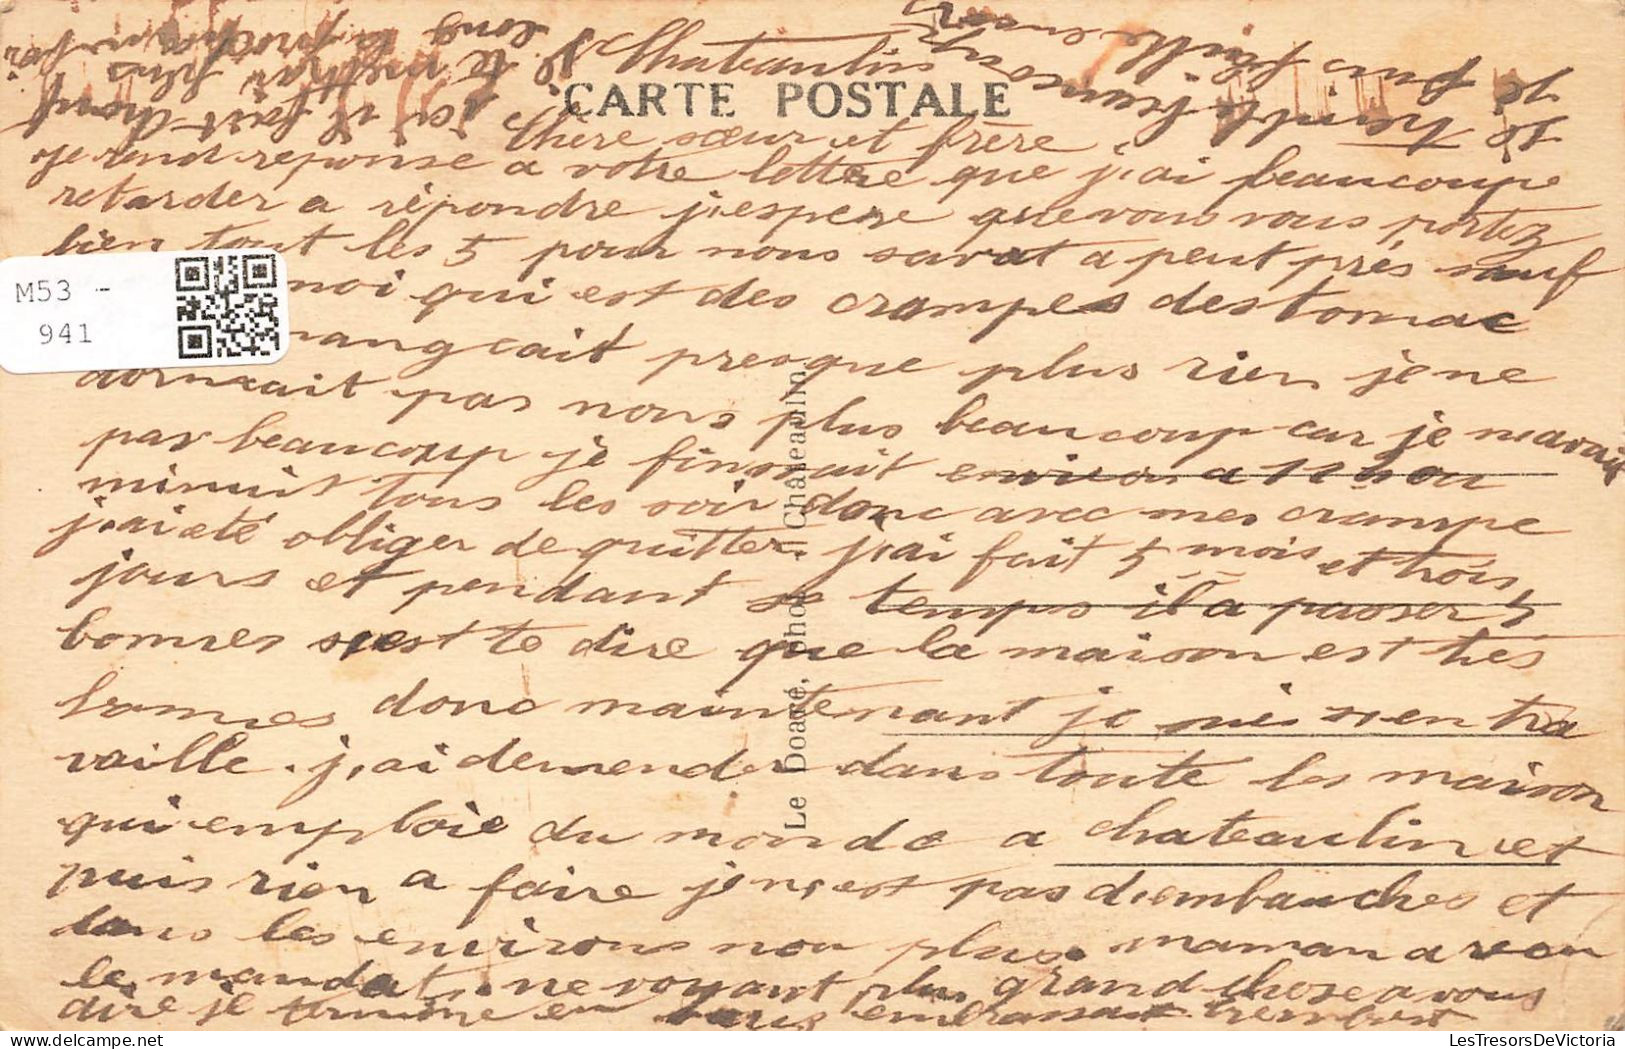 Chateaulin
CARTE POSTALE
Chere sœur et frère
je rend reponse a votre lettre que j,ai beaucoupe
retarder a répondre j,espere que vous vous portez
bien tout les 5 pour nous savat a peut prés sauf
moi qui est des crampes destomac
mangeait presque plus rien je ne
dormait pas nous plus beaucoup car je n,avait
pas beaucoup je finissait environ a 11 h ou
minuit tous les soir donc avec mes crampe
j,ai eté obliger de quitter. j,ai fait 5 mois et trois
jours et pendant se temps il a passer 5
bonnes s,est te dire que la maison est trés
bonnes donc maintenant je suis sien tra
vaille. j,ai demender dans toute les maison
qui emploie du monde a chateaulin et
puis rien a faire je n,est pas d,embauches et
dans les environs non plus. maman a reçu
le mandat. ne voyant plus grand chose a vous
dire je termine en vous embrassant
ici il fait chaud
Je te mettrai plus
long la prochaine foi
Je
Je suis faible encor
M53 -
941
Le Doaré, phot. Chateaulin
LesTresorsDeVictoria